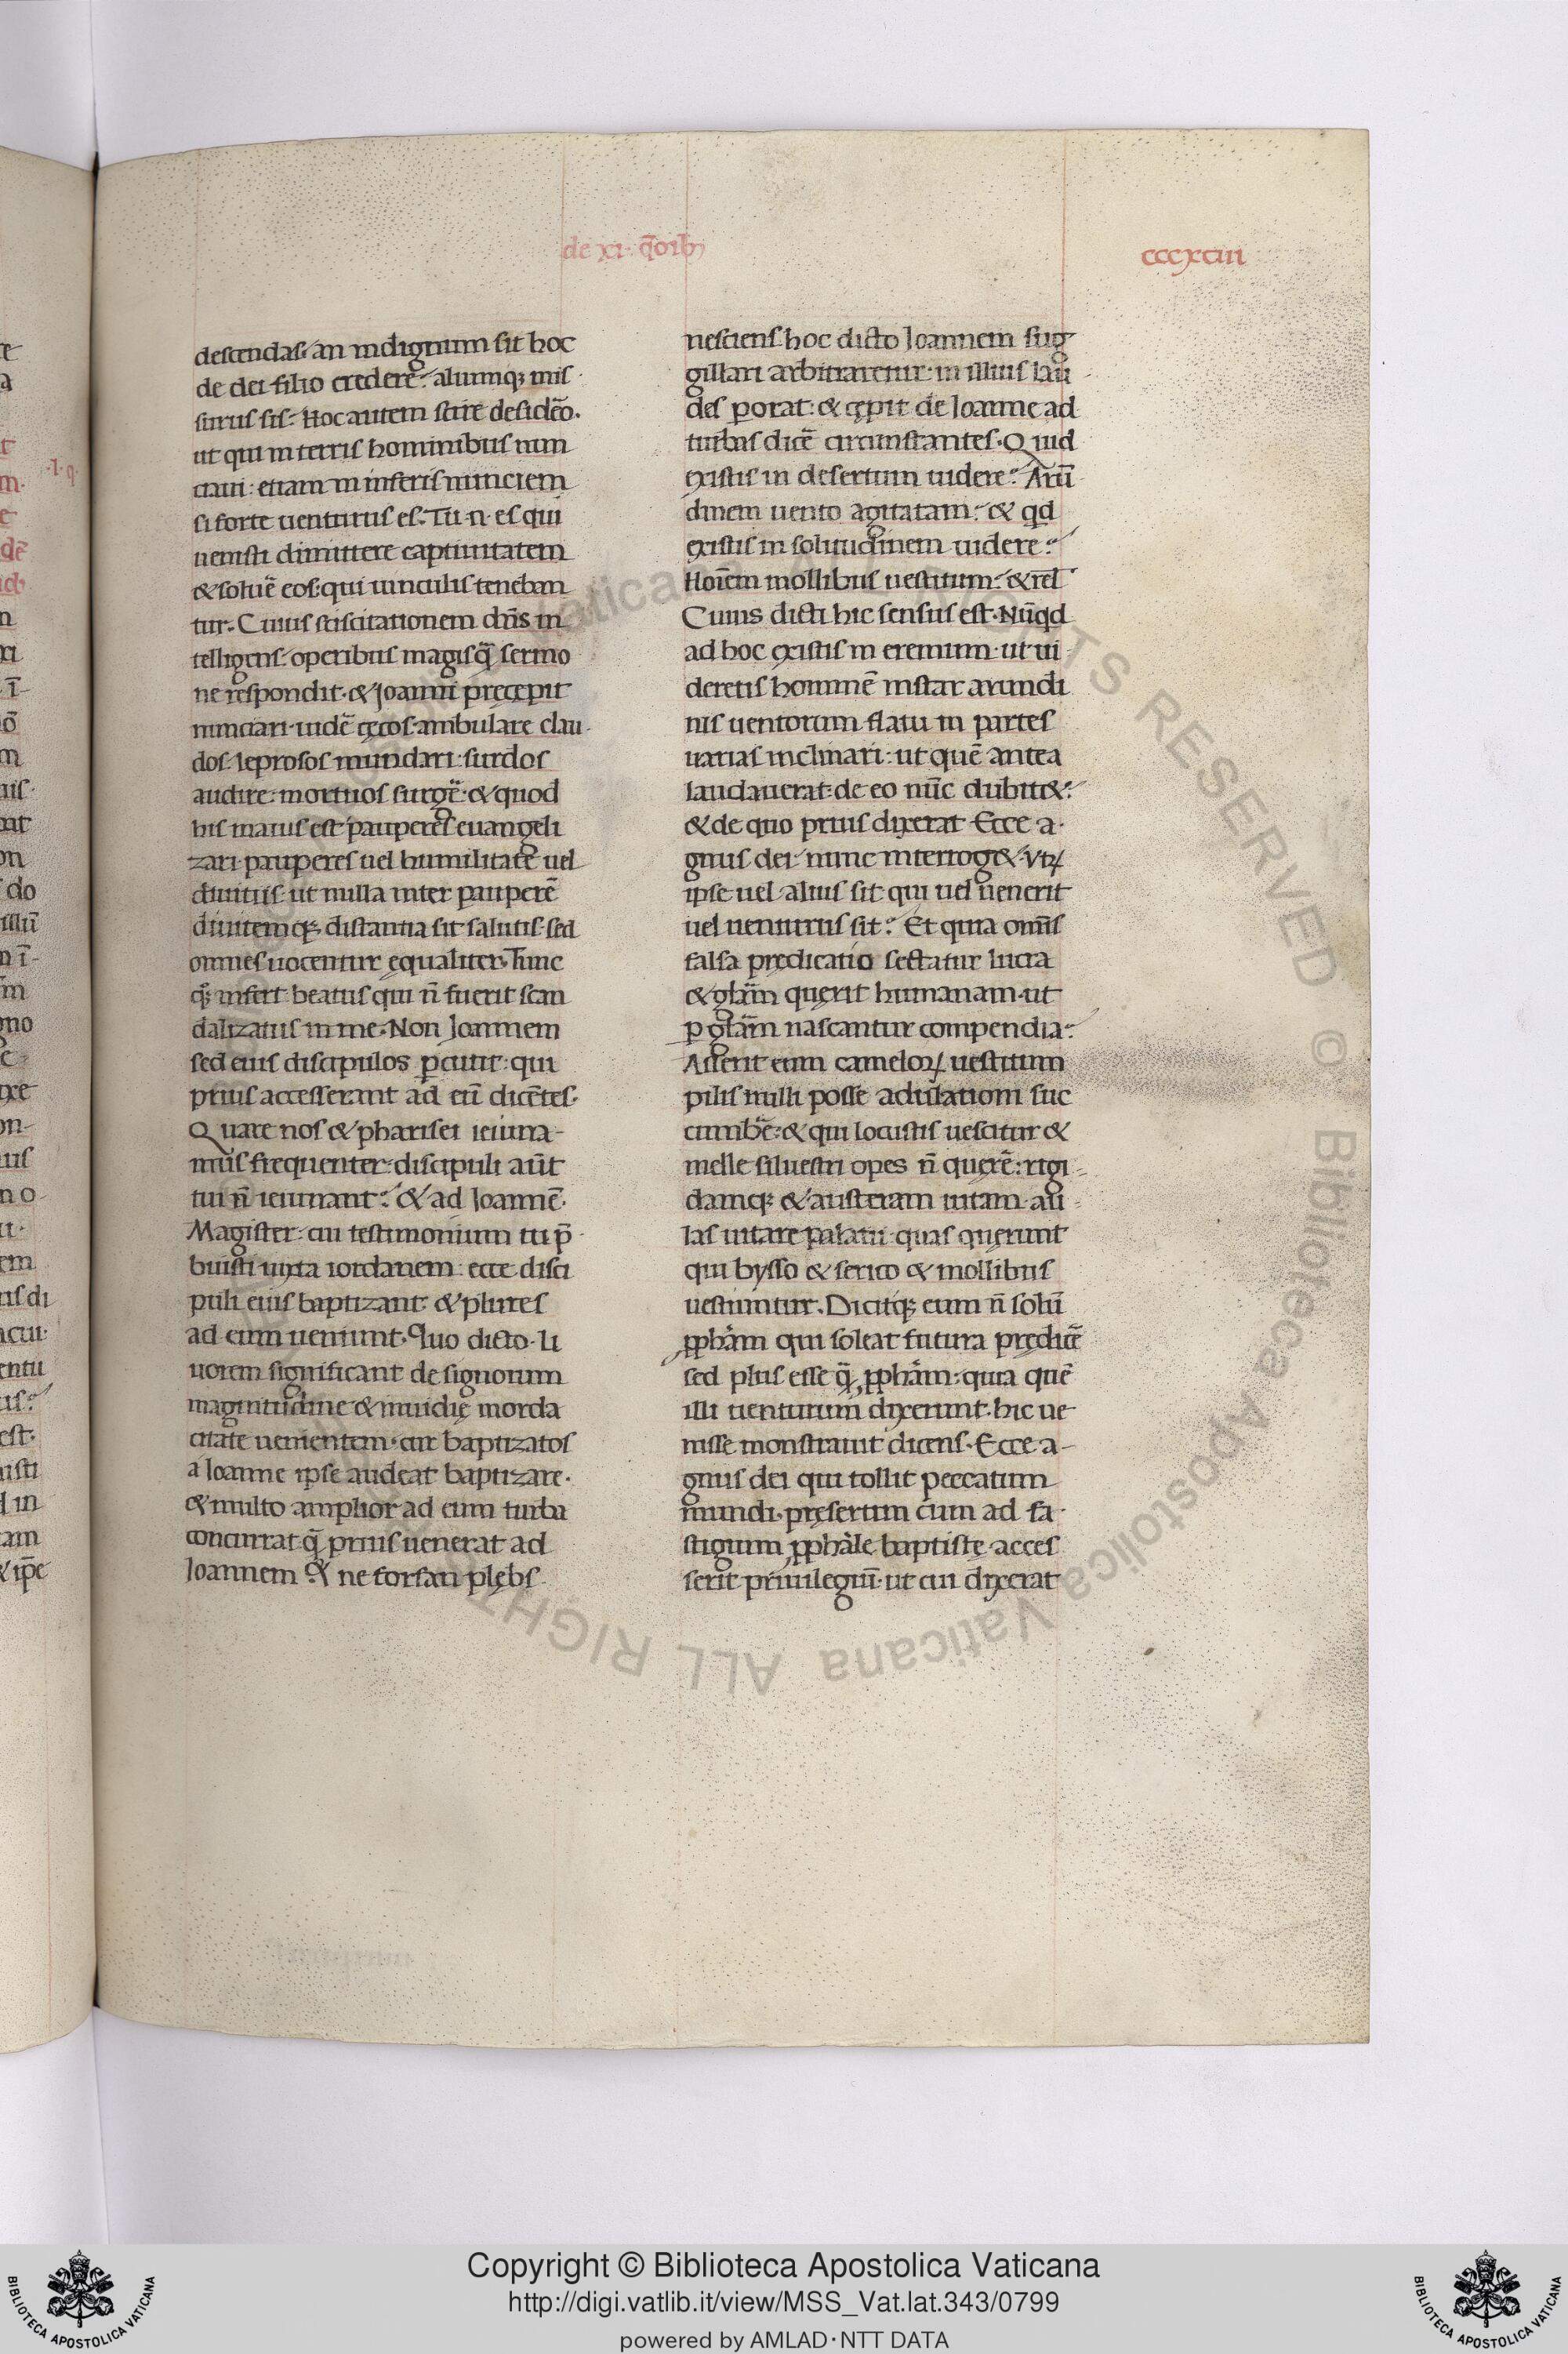 de xi q̄oib;
cccxciii
descendas· an indignum sit hoc
de dei filio credere? aliumq; mis
surus sis? Hoc autem scire desidēo·
ut qui in terris hominibus nun
ciaui: etiam in inferis nunciem
si forte uenturus es. Tu·n·es qui
uenisti dimittere captiuitatem
& soluē eos: qui uinculis teneban
tur. Cuius sciscitationem dn̄s in
telligens: operibus magisq̄ sermo
ne respondit· & Joanni pręcepit
nunciari· uidē cęcos· ambulare clau
dos· leprosos mundari· surdos
audire: mortuos surgē· & quod
his maius est pauperes euangeli
zari· pauperes uel humilitate uel
diuitiis· ut nulla inter pauperē
diuitemq; distantia sit salutis· sed
omnes uocentur ęqualiter. Tunc
q; infert beatus qui n̄ fuerit scan
dalizatus in me. Non Joannem
sed eius discipulos ꝑcutit: qui
prius accesserant ad eū dicētes·
Quare nos & pharisei ieiuna-
mus frequenter: discipuli aūt
tui n̄ ieiunant? & ad Joannē·
Magister cui testimonium tu p̄
buisti iuxta iordanem: ecce disci
puli eius baptizant & plures
ad eum ueniunt. Quo dicto· li
uorem significant de signorum
magnitudine & inuidię morda
citate uenientem· cur baptizatos
a Joanne ipse audeat baptizare·
& multo amplior ad eum turba
concurrat q̄ prius uenerat ad
Joannem. Et ne forsan plębs
nesciens· hoc dicto Joannem sug
gillari arbitraretur· in illius lau
des ꝑorat: & cępit de Joanne ad
turbas dicē circunstantes. Quid
existis in desertum uidere? Arū
dinem uento agitatam? & qd
existis in solitudinem uidere?
Hoīem mollibus uestitum? & rel̄
Cuius dicti hic sensus est. Nūqd
ad hoc existis in eremum· ut ui
deretis hominē instar arundi
nis uentorum flatu in partes
uarias inclinari: ut quē antea
laudauerat· de eo nūc dubit&?
& de quo prius dixerat Ecce a·
gnus dei· nunc interrog& utꝝ
ipse uel alius sit qui uel uenerit
uel uenturus sit? Et quia om̄is
falsa pręditatio sectatur lucra
& gl̄am quęrit humanam· ut
ꝑ gl̄am nascantur compendia?
Asserit eum cameloꝝ uestitum
pilis nulli posse adulationi suc
cumbē: & qui locustis uescitur &
melle siluestri opes n̄ querē: rigi-
damq; & austeram uitam au-
las uitare palatii· quas quęrunt
qui bysso & serico & mollibus
uestiuntur. Dicitq; eum n̄ solū
ꝓpham qui soleat futura prędicē
sed plus esse q̄ ꝓpham: quia quē
illi uenturum dixerunt· hic ue
nisse monstrauit dicens. Ecce a-
gnus dei qui tollit peccatum
mundi· pręsertim cum ad fa·
stigium ꝓphale baptistę acces
serit priuilegiū· ut cui dixerat
Copyright © Biblioteca Apostolica Vaticana
http://digi.vatlib.it/view/MSS_Vat.lat.343/0799
powered by AMLAD·NTT DATA